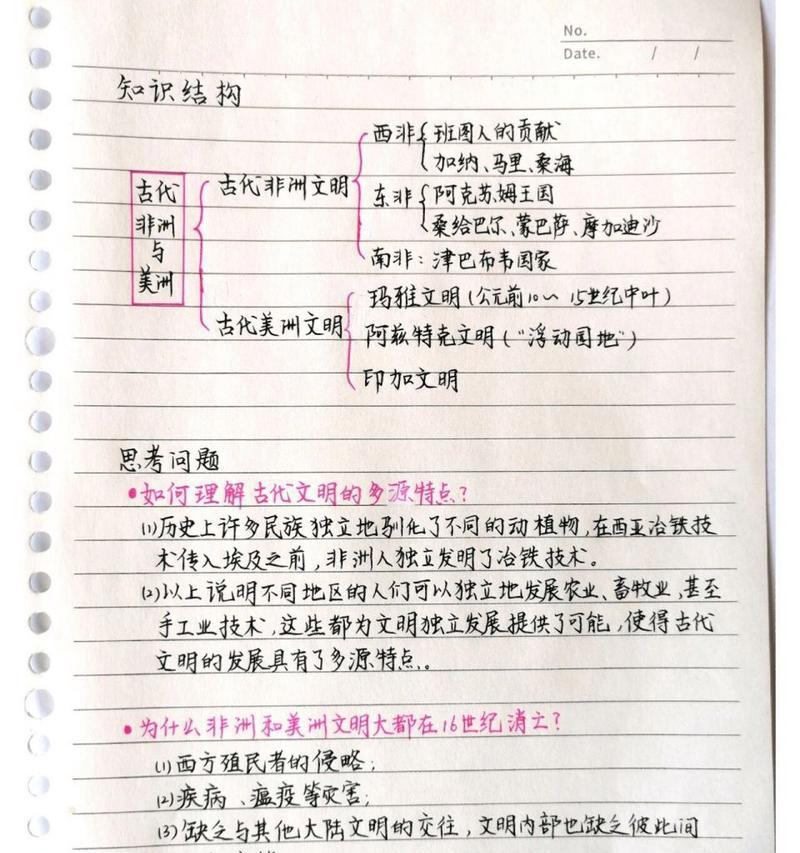 No.
Date. / /
知识结构
古代非洲与美洲
古代非洲文明
西非
班图人的贡献
加纳、马里、桑海
东非
阿克苏姆王国
桑给巴尔、蒙巴萨、摩加迪沙
南非：津巴布韦国家
古代美洲文明
玛雅文明(公元前10~15世纪中叶)
阿兹特克文明("浮动园地")
印加文明
思考问题
•如何理解古代文明的多源特点？
(1)历史上许多民族独立地驯化了不同的动植物，在西亚冶铁技
术传入埃及之前，非洲人独立发明了冶铁技术。
(2)以上说明不同地区的人们可以独立地发展农业、畜牧业，甚至
手工业技术，这些都为文明独立发展提供了可能，使得古代
文明的发展具有了多源特点。
•为什么非洲和美洲文明大都在16世纪消亡？
(1)西方殖民者的侵略；
(2)疾病、瘟疫等灾害；
(3)缺乏与其他大陆文明的交往，文明内部也缺乏彼此间